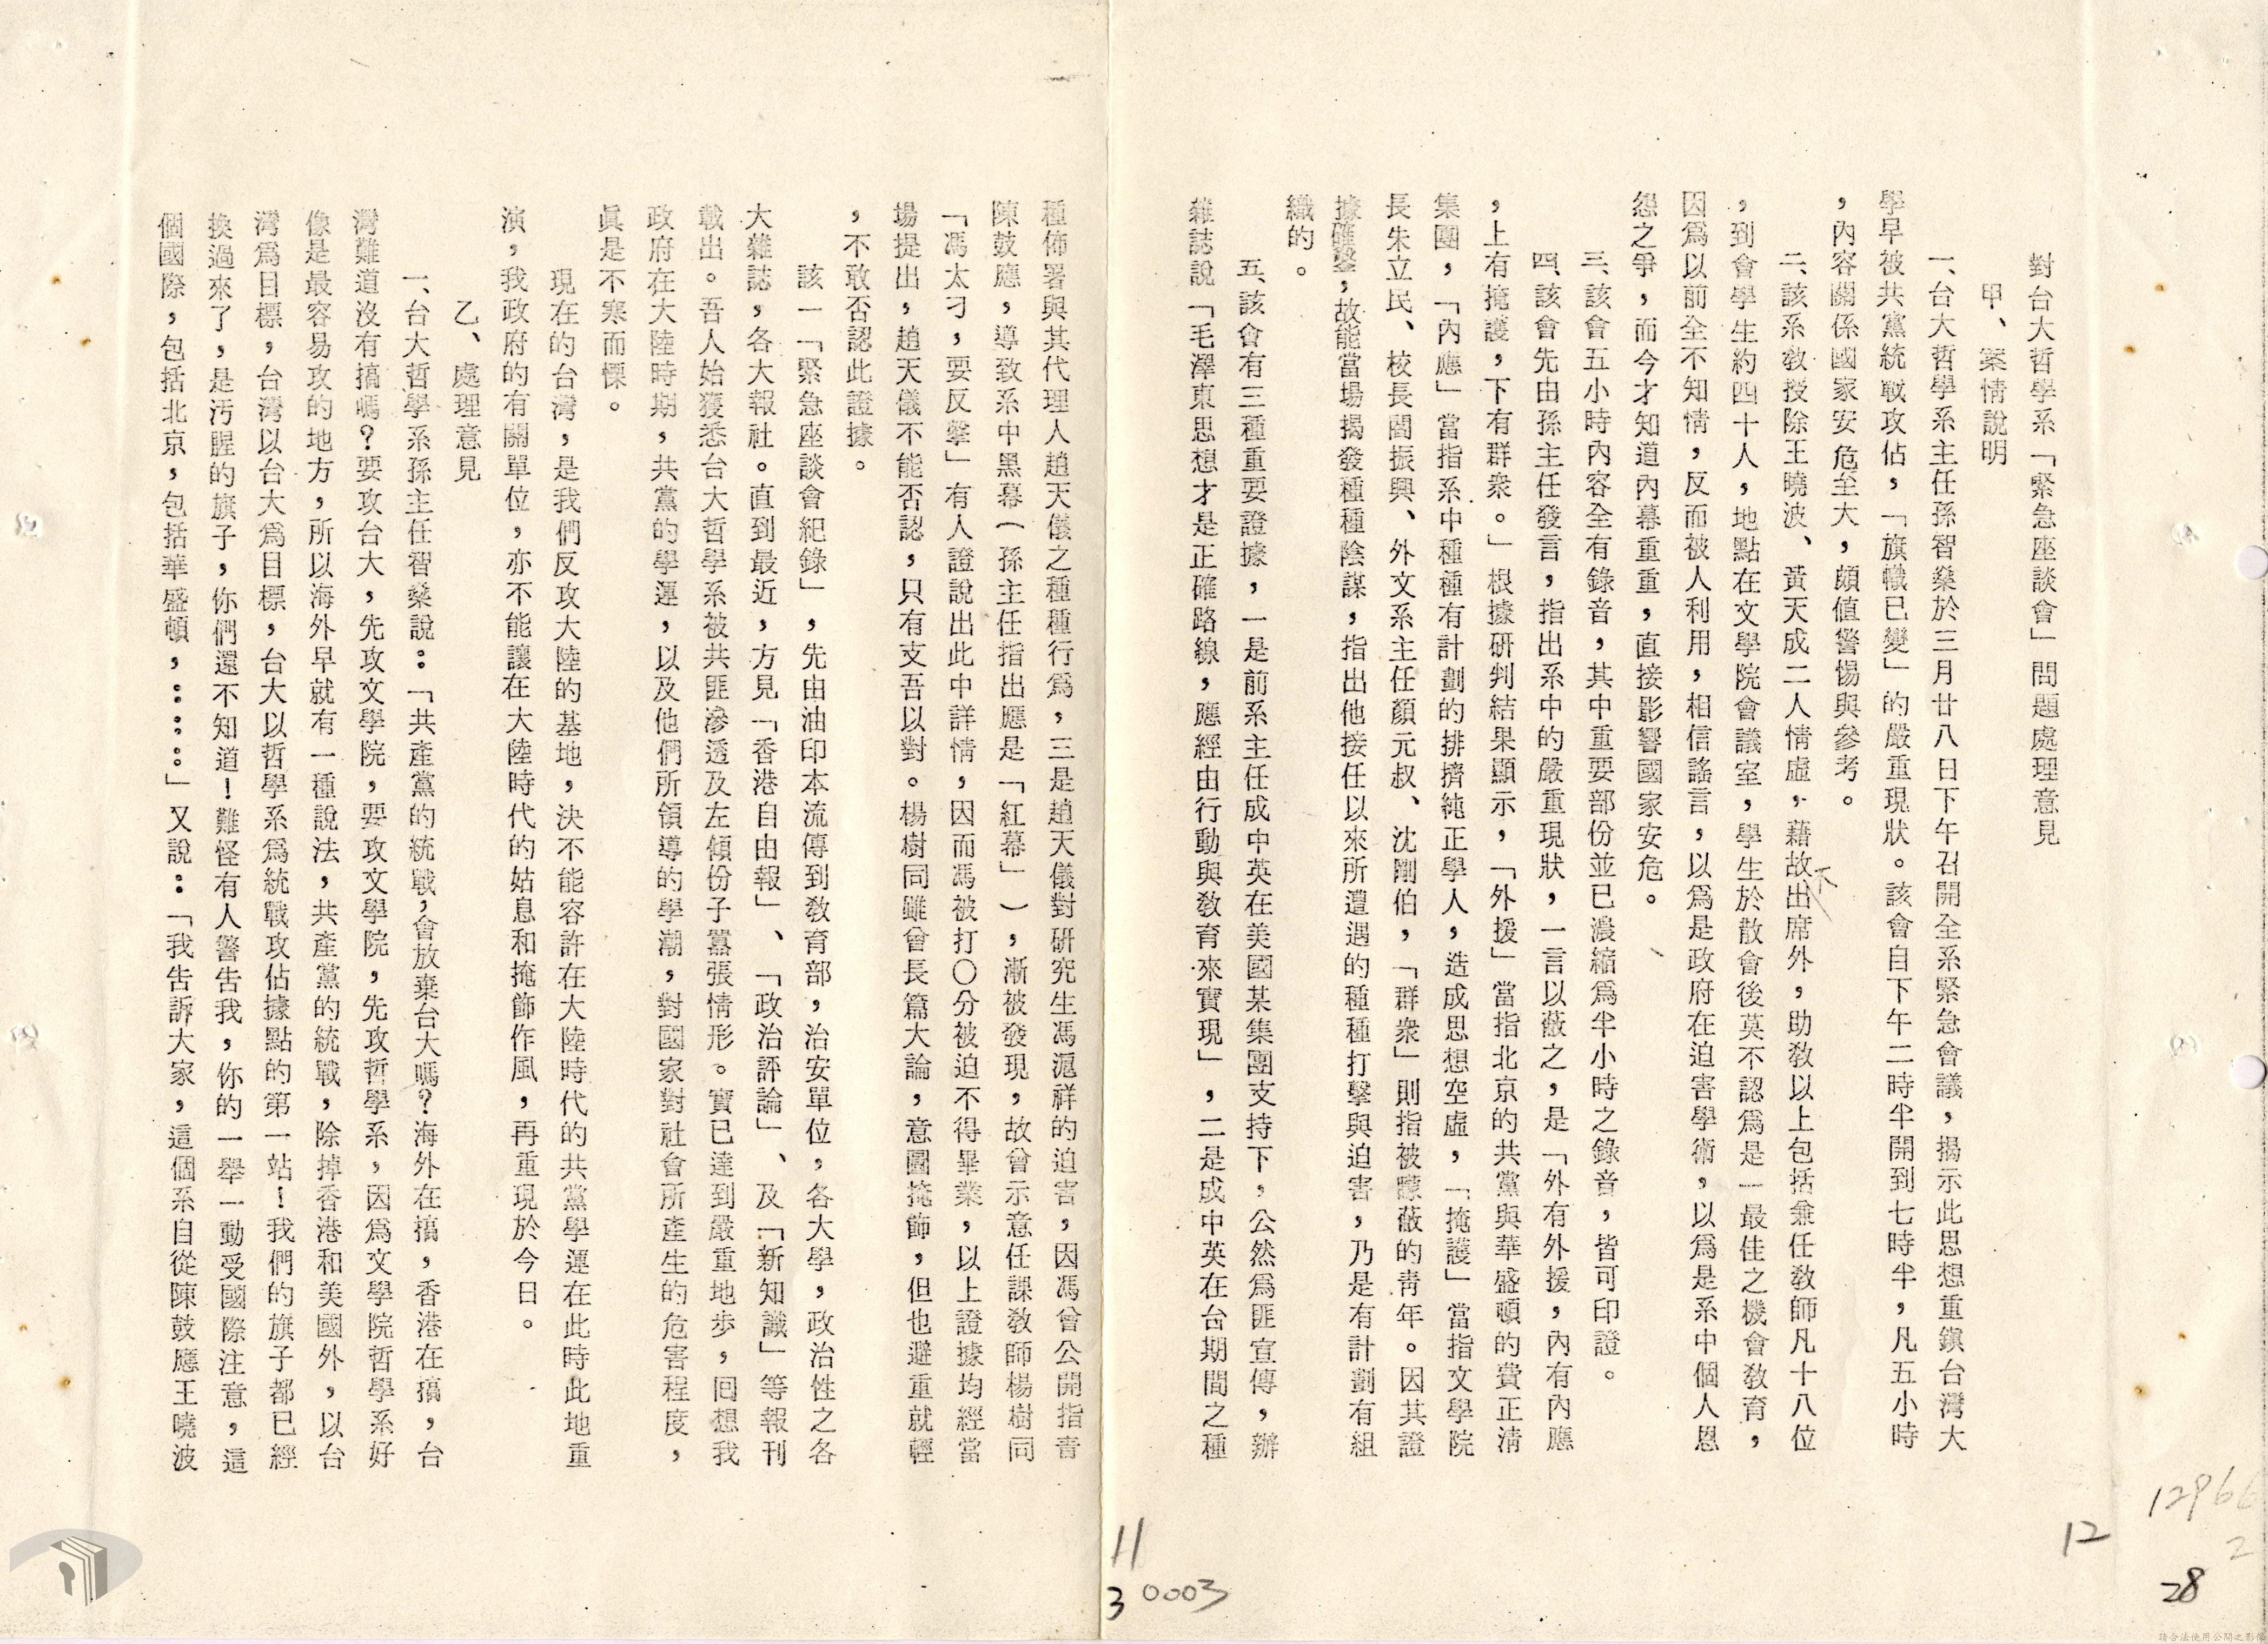 對台大哲學系「緊急座談會」問題處理意見
甲、案情說明
一、台大哲學系主任孫智燊於三月廿八日下午召開全系緊急會議，揭示此思想重鎭台灣大
學早被共黨統戰攻佔，「旗幟已變」的嚴重現狀。該會自下午二時半開到七時半，凡五小時
，內容關係國家安危至大，頗值警惕與參考。
二、該系敎授除王曉波、黃天成二人情虛，藉故不出席外，助敎以上包括兼任敎師凡十八位
，到會學生約四十人，地點在文學院會議室，學生於散會後莫不認爲是一最佳之機會敎育，
因爲以前全不知情，反而被人利用，相信謠言，以爲是政府在迫害學術，以爲是系中個人恩
怨之爭，而今才知道內幕重重，直接影響國家安危。
三、該會五小時內容全有錄音，其中重要部份並已濃縮爲半小時之錄音，皆可印證。
四、該會先由孫主任發言，指出系中的嚴重現狀，一言以蔽之，是「外有外援，內有內應
，上有掩護，下有群衆。」根據研判結果顯示，「外援」當指北京的共黨與華盛頓的費正淸
集團，「內應」當指系中種種有計劃的排擠純正學人，造成思想空虛，「掩護」當指文學院
長朱立民、校長閻振興、外文系主任顏元叔、沈剛伯，「群衆」則指被矇蔽的靑年。因其證
據確鑿，故能當場揭發種種陰謀，指出他接任以來所遭遇的種種打擊與迫害，乃是有計劃有組
織的。
五、該會有三種重要證據，一是前系主任成中英在美國某集團支持下，公然爲匪宣傳，辦
雜誌說「毛澤東思想才是正確路線，應經由行動與敎育來實現」，二是成中英在台期間之種
種佈署與其代理人趙天儀之種種行爲，三是趙天儀對研究生馮滬祥的迫害，因馮曾公開指責
陳鼓應，導致系中黑幕（孫主任指出應是「紅幕」），漸被發現，故曾示意任課敎師楊樹同
「馮太刁，要反擊」有人證說出此中詳情，因而馮被打〇分被迫不得畢業，以上證據均經當
場提出，趙天儀不能否認，只有支吾以對。楊樹同雖曾長篇大論，意圖掩飾，但也避重就輕
，不敢否認此證據。
該一「緊急座談會紀錄」，先由油印本流傳到敎育部，治安單位，各大學，政治性之各
大雜誌，各大報社。直到最近，方見「香港自由報」、「政治評論」、及「新知識」等報刊
載出。吾人始獲悉台大哲學系被共匪滲透及左傾份子囂張情形。實已達到嚴重地步，囘想我
政府在大陸時期，共黨的學運，以及他們所領導的學潮，對國家對社會所產生的危害程度，
眞是不寒而慄。
現在的台灣，是我們反攻大陸的基地，決不能容許在大陸時代的共黨學運在此時此地重
演，我政府的有關單位，亦不能讓在大陸時代的姑息和掩飾作風，再重現於今日。
乙、處理意見
一、台大哲學系孫主任智燊說：「共產黨的統戰，會放棄台大嗎？海外在搞，香港在搞，台
灣難道沒有搞嗎？要攻台大，先攻文學院，要攻文學院，先攻哲學系，因爲文學院哲學系好
像是最容易攻的地方，所以海外早就有一種說法，共產黨的統戰，除掉香港和美國外，以台
灣爲目標，台灣以台大爲目標，台大以哲學系爲統戰攻佔據點的第一站！我們的旗子都已經
換過來了，是汚腥的旗子，你們還不知道！難怪有人警告我，你的一舉一動受國際注意，這
個國際，包括北京，包括華盛頓，：：：：」又說：「我告訴大家，這個系自從陳鼓應王曉波
11
3 0003
12
12966
2
28
請合法使用公開之影像